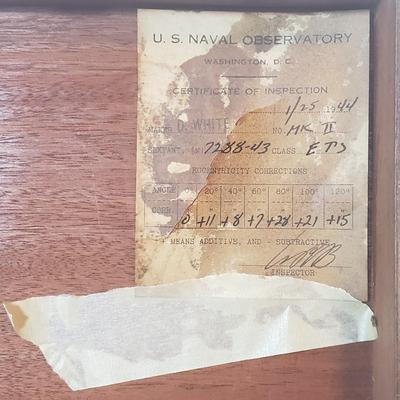 U. S. NAVAL OBSERVATORY
WASHINGTON, D. C.
CERTIFICATE OF INSPECTION
1/25 1944
MAKER D. WHITE NO. MK II
SEXTANT, 7288-43 CLASS ETS
ECCENTRICITY CORRECTIONS
ANGLE 0° 20° 40° 60° 80° 100° 120°
CORR. 0 +11 +8 +7 +28 +21 +15
+ MEANS ADDITIVE, AND - SUBTRACTIVE
INSPECTOR